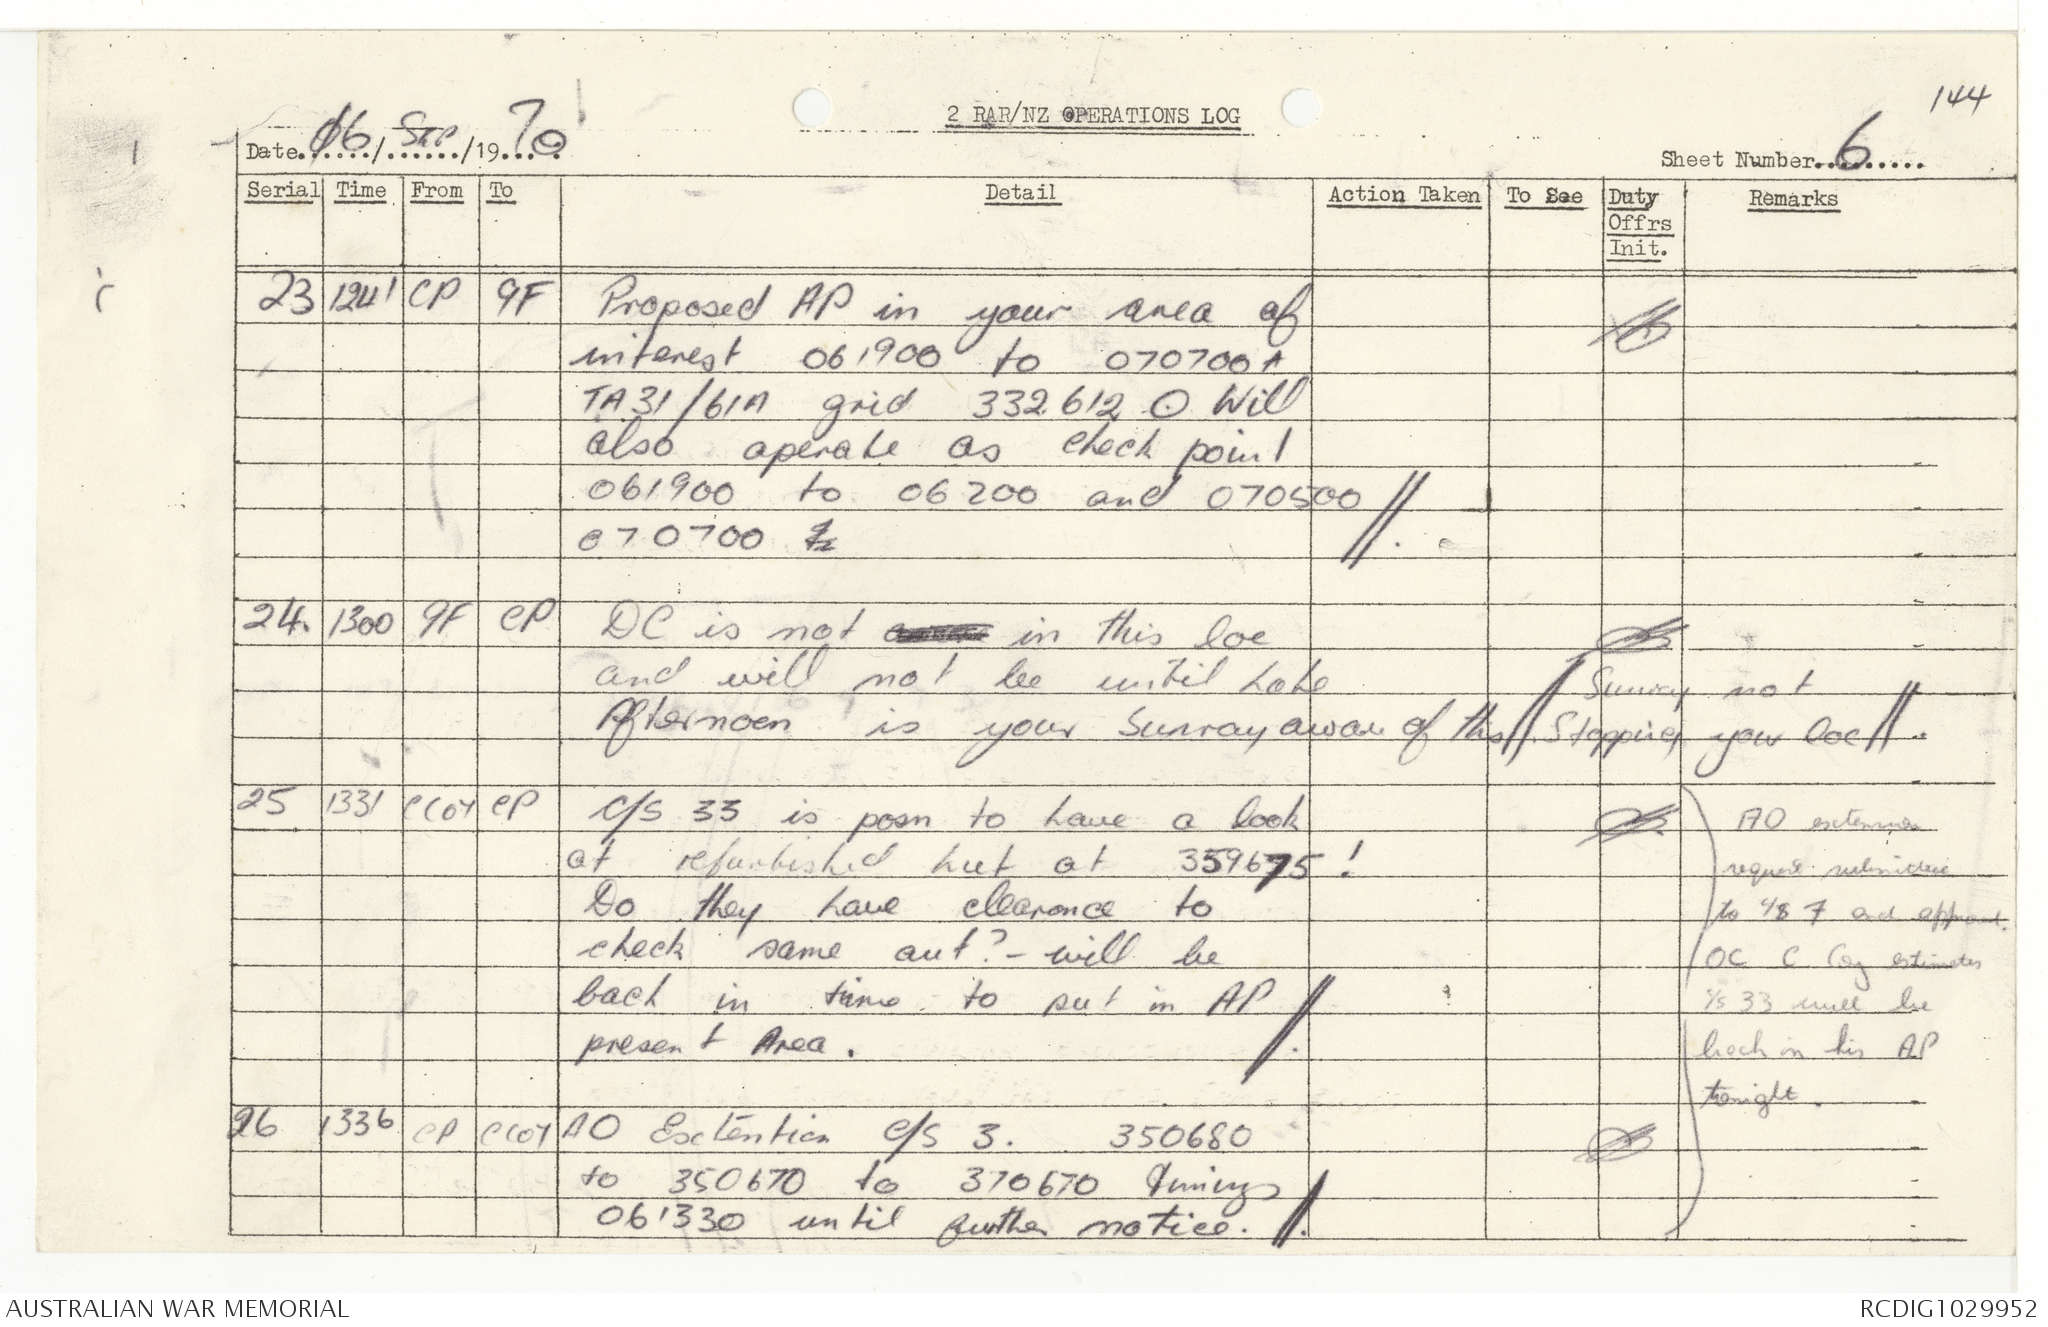 144
2 RAR/NZ OPERATIONS LOG
Date 06/Sep/1970
Sheet Number 6
Serial Time From To Detail Action Taken To See Duty Offrs Init. Remarks
23 1241 CP 9F Proposed AP in your area of
interest 061900 to 070700 A
TA31/61A grid 332612 O Will
also operate as check point
061900 to 06200 and 070500 //
070700
24. 1300 9F CP DC is not in this loc
and will not be until Late Sunray not
Afternoon is your Sunray aware of this // Stopping your loc //.
25 1331 CCOY CP C/S 33 is posn to have a look AO extension
at refurbished hut at 359675! request submitted
Do they have clearance to to C/S 7 and approved.
check same out? - will be OC C Coy estimates
back in time to put in AP C/S 33 will be
present Area. //. back in his AP
tonight.
26 1336 CP CCOY AO Extention C/S 3. 350680
to 350670 to 370670 timings
061330 until further notice. //.
AUSTRALIAN WAR MEMORIAL
RCDIG1029952